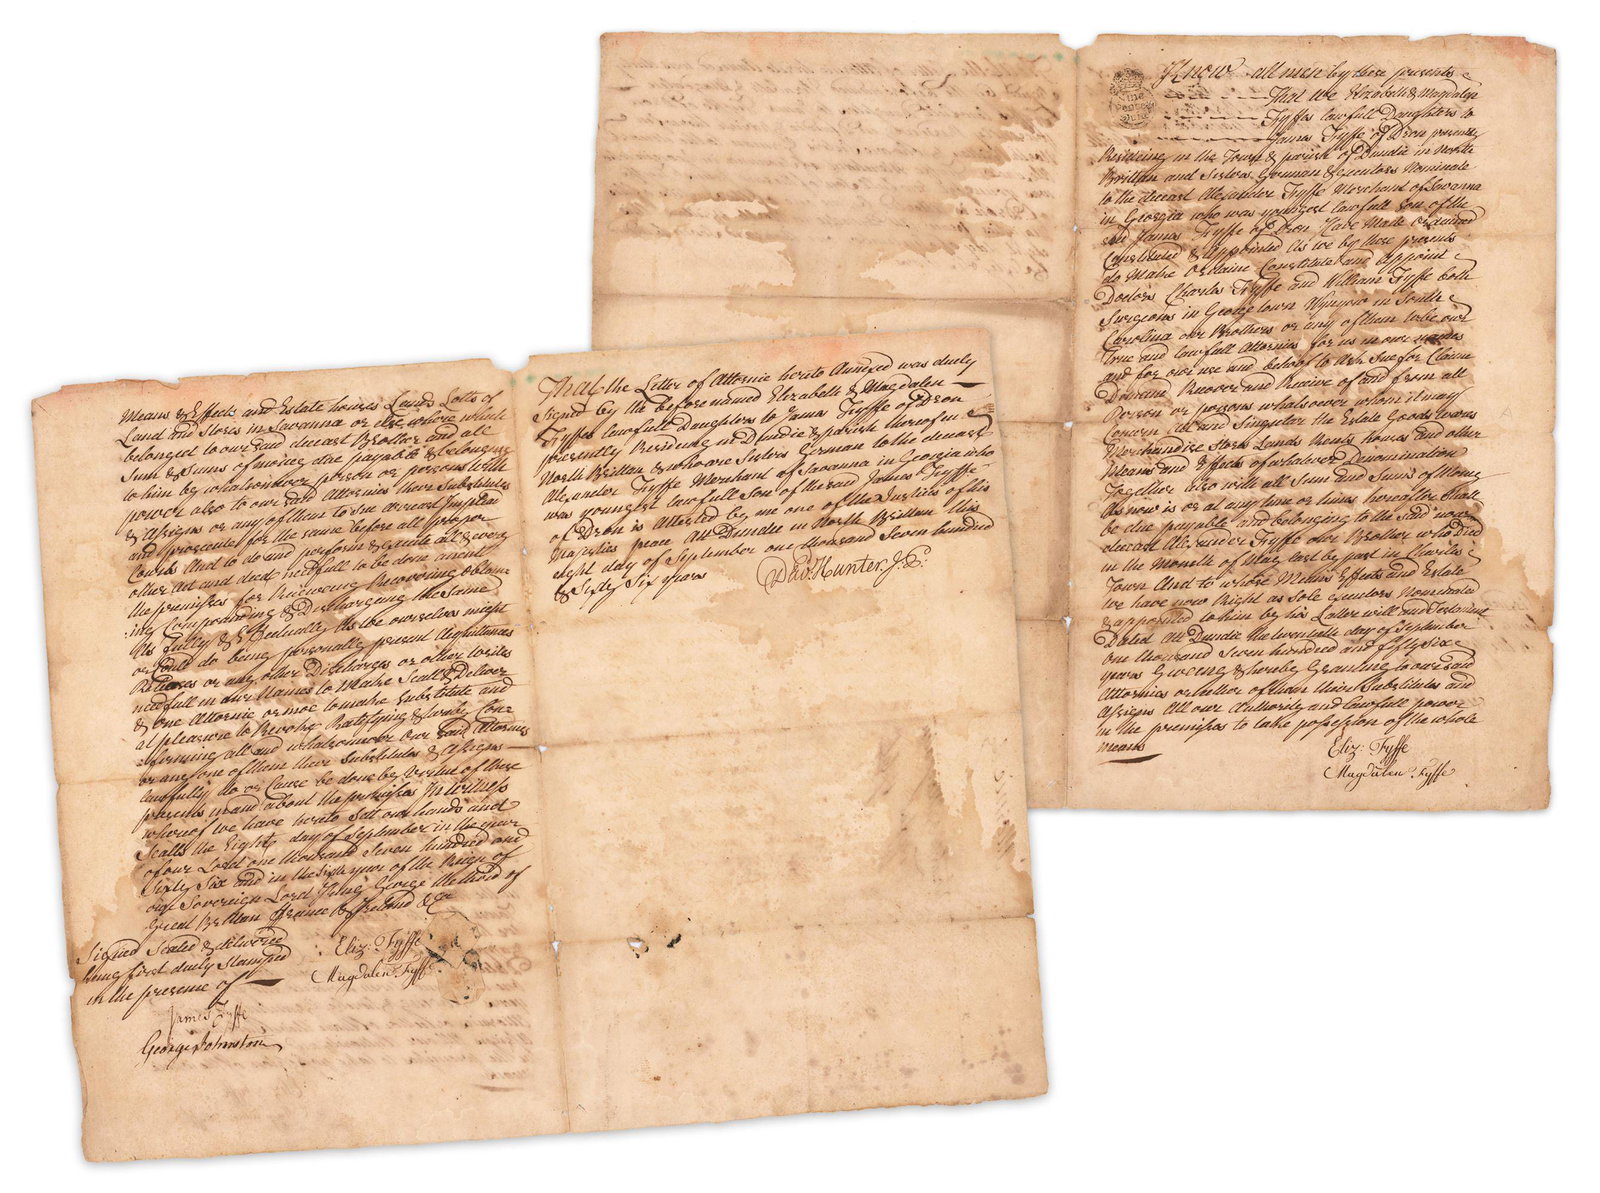 Know all men by these presents
That We Elizabeth & Magdalen
Fyffes lawfull Daughters to
James Fyffe of Dron presently
Resideing in the Town & parish of Dundie in North
Brittan and Sisters German & Executors Nominate
to the deceast Alexander Fyffe Merchant of Savanna
in Georgia who was youngest lawfull Son of the
said James Fyffe of Dron Have Made ordained
Constituted & appointed As we by these presents
do Make Ordaine Constitute and Appoint
Doctors Charles Fyffe and William Fyffe both
Surgeons in Georgetown Wynyaw in South
Carolina our Brothers or any of them to be our
True and lawfull Attornies for us in our names
and for our use and behoof to Ask Sue for Claime
Demand Recover and Receive of and from all
Person or persons whatsoever whom it may
Concern All and Singular the Estate Goods wares
Merchandise Stores Lands Rents houses and other
Means and Effects of whatever Denomination
Together also with all Sum and Sums of Money
As now is or at any time or times hereafter Shall
be due payable and belonging to the said now
deceast Alexander Fyffe our Brother who Died
in the Month of May last by past in Charles
Town And to whose Means Effects and Estate
We have now Right as Sole Executors Nominated
& appointed to him by his Latter will and Testament
Dated Att Dundie the twentieth day of September
One thousand Seven hundred and fifty six
years Giveing & hereby Granting to our said
Attornies or either of them their Substitutes and
Assigns All our Authority and lawfull power
in the premisses to take possession of the whole
means
Eliz: Fyffe
Magdalen Fyffe
Means & Effects and Estate houses Lands Lotts of
Land and Stores in Savanna or else where which
belonged to our said deceast Brother and all
Sum & Sums of money due payable & belonging
to him by whatsomever person or persons With
power also to our said Attornies their Substitutes
& Assigns or any of them to Sue arrest Imprison
and prosecute for the same before all proper
Courts And to do and perform & execute all & every
other Act and deed needfull to be done anent
the premisses for Receiveing Recovering Obtain
:ing Compounding & Discharging the Same
As fully & Effectually As we ourselves might
or Could do being personally present Acquittances
Releases or any other Discharges or other Writs
needfull in our Names to Make Seall & Deliver
& one Attornie or moe to make Substitute and
at pleasure to Revoke Ratifying & hereby Con=
:firming all and whatsomever Our said Attornies
or any one of them there Substitutes & Assigns
lawfully do or Cause be done be Vertue of these
presents in and about the premisses In witness
whereof we have hereto Sett our hands and
Sealls the Eight day of September in the year
of our Lord one thousand Seven hundred and
Sixty Six and in the sixth year of the Reign of
our Sovereign Lord King George the third of
Great Brittan France & Ireland &ca
Signed Sealed & delivered
being first duely Stamped
in the presence of
Eliz: Fyffe
Magdalen Fyffe
James Fyffe
George Johnston
That the Letter of Attornie hereto Annixed was duely
Signed by the before named Elizabeth & Magdalen
Fyffes lawfull Daughters to James Fyffe of Dron
presently Resideing in Dundie & parish thereof in
North Brittan & who are Sisters German to the deceast
Alexander Fyffe Merchant of Savanna in Georgia who
was youngest lawfull Son of the said James Fyffe
of Dron is Attested by me one of the Justices of his
Majesties peace Att Dundie in North Brittan this
eight day of September one thousand Seven hundred
& Sixty Six years
Davd. Hunter J:P: